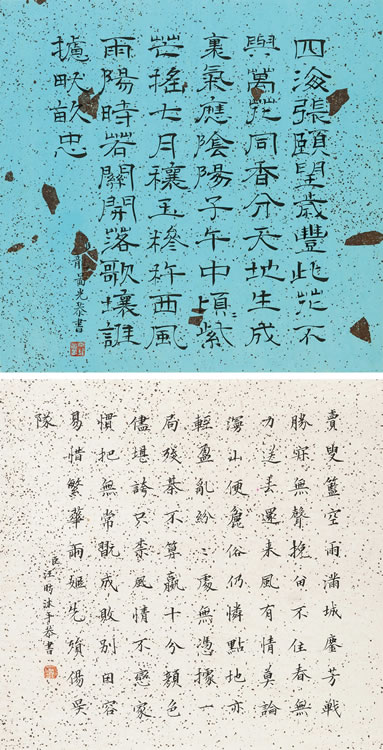 四海張頤望歲豐此花不
與萬花同香分天地生成
裏氣應陰陽子午中頃紫
芒搖七月穰玉糝秤西風
雨陽時若關開落歌壤誰
攄畎畝忠
光恭書
賣叟籃空雨滿城塵芳戰
勝寂無聲挽留不住春無
力送去還来風有情莫論
漫山便麁俗仍憐點地亦
輕盈亂紛〻處無憑據一
局殘棊不算贏十分顏色
儘堪誇只柰風情不戀家
慣把無常戲成敗別因容
易惜繁華兩姬先殞傷吳
隊
臣汪昉沐手恭書